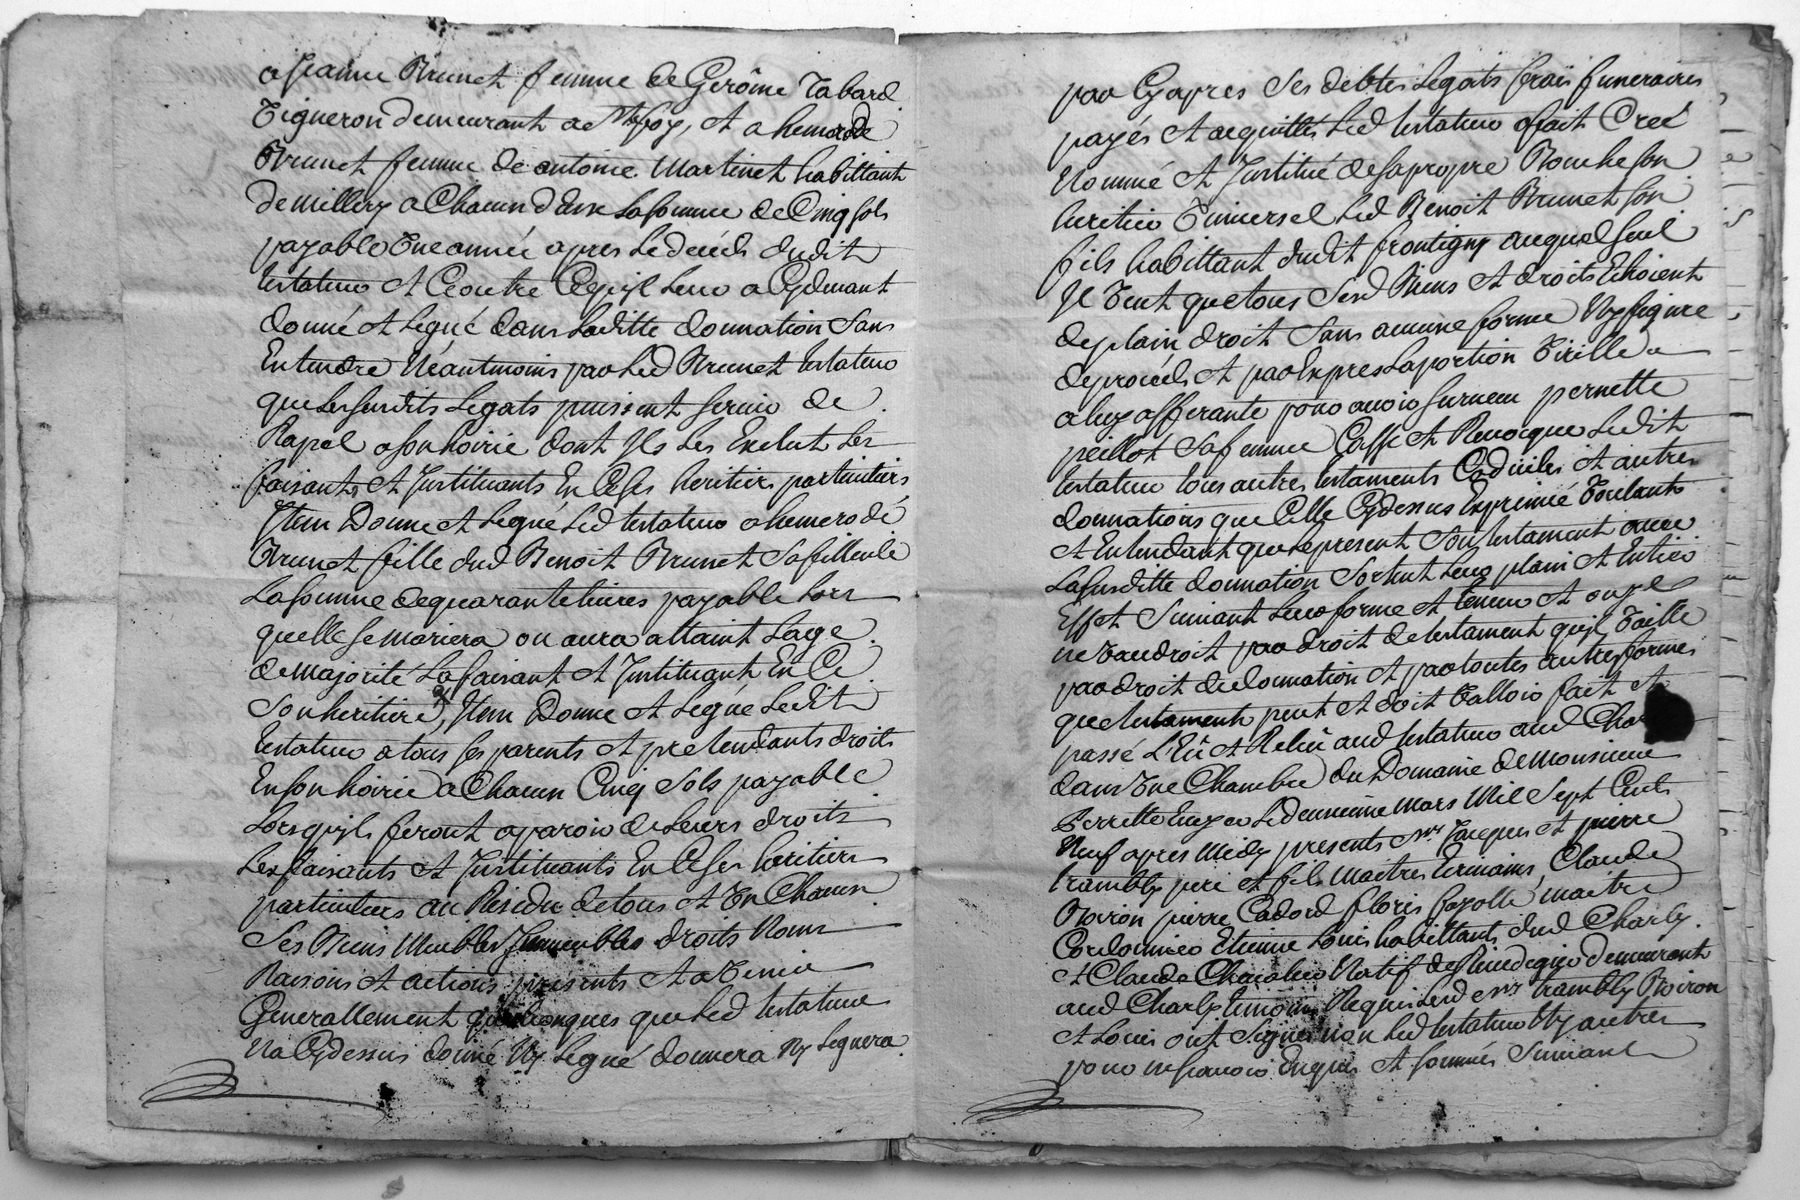 a Jeanne Brunet femme de Gerôme Tabard
Vigneron demeurant a Ste foy, et a hemerode
Brunet femme de antoine Martinet habittant
de millery a Chacun d Eux La somme de Cinq sols
payable Une année apres Le deceds dudit
testateur et Ce outre Ce qu'jl Leur a Cydevant
donné et Legué dans Laditte donnation Sans
Entendre Neantmoins par Led Brunet testateur
que Les susdits Legats puissent servir de
Rapel a son hoirie dont Jls Les Exclut Les
faisants et Jnstituants En Ce ses heritiers particuliers
Jtem Donne et Legue Led testateur a hemerodé
Brunet fille dud Benoit Brunet Sa filleule
La somme de quarante livres payable Lors
quelle se mariera ou aura attaint Lage
de majorité La faisant et Jnstituant En Ce
Son heritiere, Jtem Donne et Legue Ledit
testateur a tous ses parents et pretendants droits
En son hoirie a Chacun Cinq Sols payable
Lorsqu'jls feront aparoir de Leurs droits
Les faisants et Jnstituants En Ce ses heritiers
particuliers au Residu de tous et Un Chacun
Ses Biens Meubles Jmmeubles droits Noms
Raisons et actions presents et a Venir
Generallement quelconques que Led testateur
Na Cydessus donné Ny Legué donnera Ny Leguera
par Cy apres Ses debtes Legats frais funeraires
payés et acquittés Led testateur a fait Creé
Nommé et Jnstitué de sa propre Bouche son
heritier Universel Led Benoit Brunet son
fils habittant dudit frontigny auquel seul
Jl Veut que tous Sesd Biens et droits Echoient
de plain droit Sans aucune forme Ny figure
de proceds et par Expres La portion Virille
a luy afferante pour avoir survecu pernette
peillot Sa femme Casse et Revocque Ledit
testateur tous autres testaments Codiciles et autres
donnations que Celle Cydessus Exprimée Voulant
et Entendant que Le present Son testament avec
La susditte donnation Sortent Leur plain et Entier
Effet Suivant Leur forme et teneur et ou jl
ne Vaudroit par droit de testament qu'jl Vaille
par droit de donnation et par toutes autres formes
que testament peut et doit Valloir fait et
passé L'Eu et Releu aud testateur aud Char
dans Une Chambre du Domaine de Monsieur
Perrette Le deuxieme Mars Mil Sept Cents
Neuf apres Midy presents Srs Jacques et pierre
trambly pere et fils Maitres Ecrivains, Claude
Boiron pierre Cadord floris fayolle maitre
Cordonnier Etienne Louis habittants dud Charly
et Claude Chevalier Natif de demeurant
aud Charly temoins Requis Lesd Srs trambly Boiron
et Louis ont Signés non Led testateur Ny autres
pour ne sçavoir Enquis et sommés Suivant